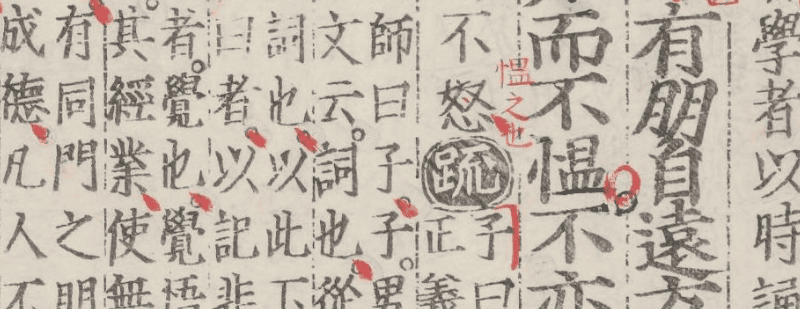 學者以時誦
有朋自遠方
而不慍不亦
慍之也
不怒䟽子曰
正義
師曰子子男
文云詞也從
詞也以此下
曰者以記非
者覺也覺悟
其經業使無
有同門之朋
成德凡人不